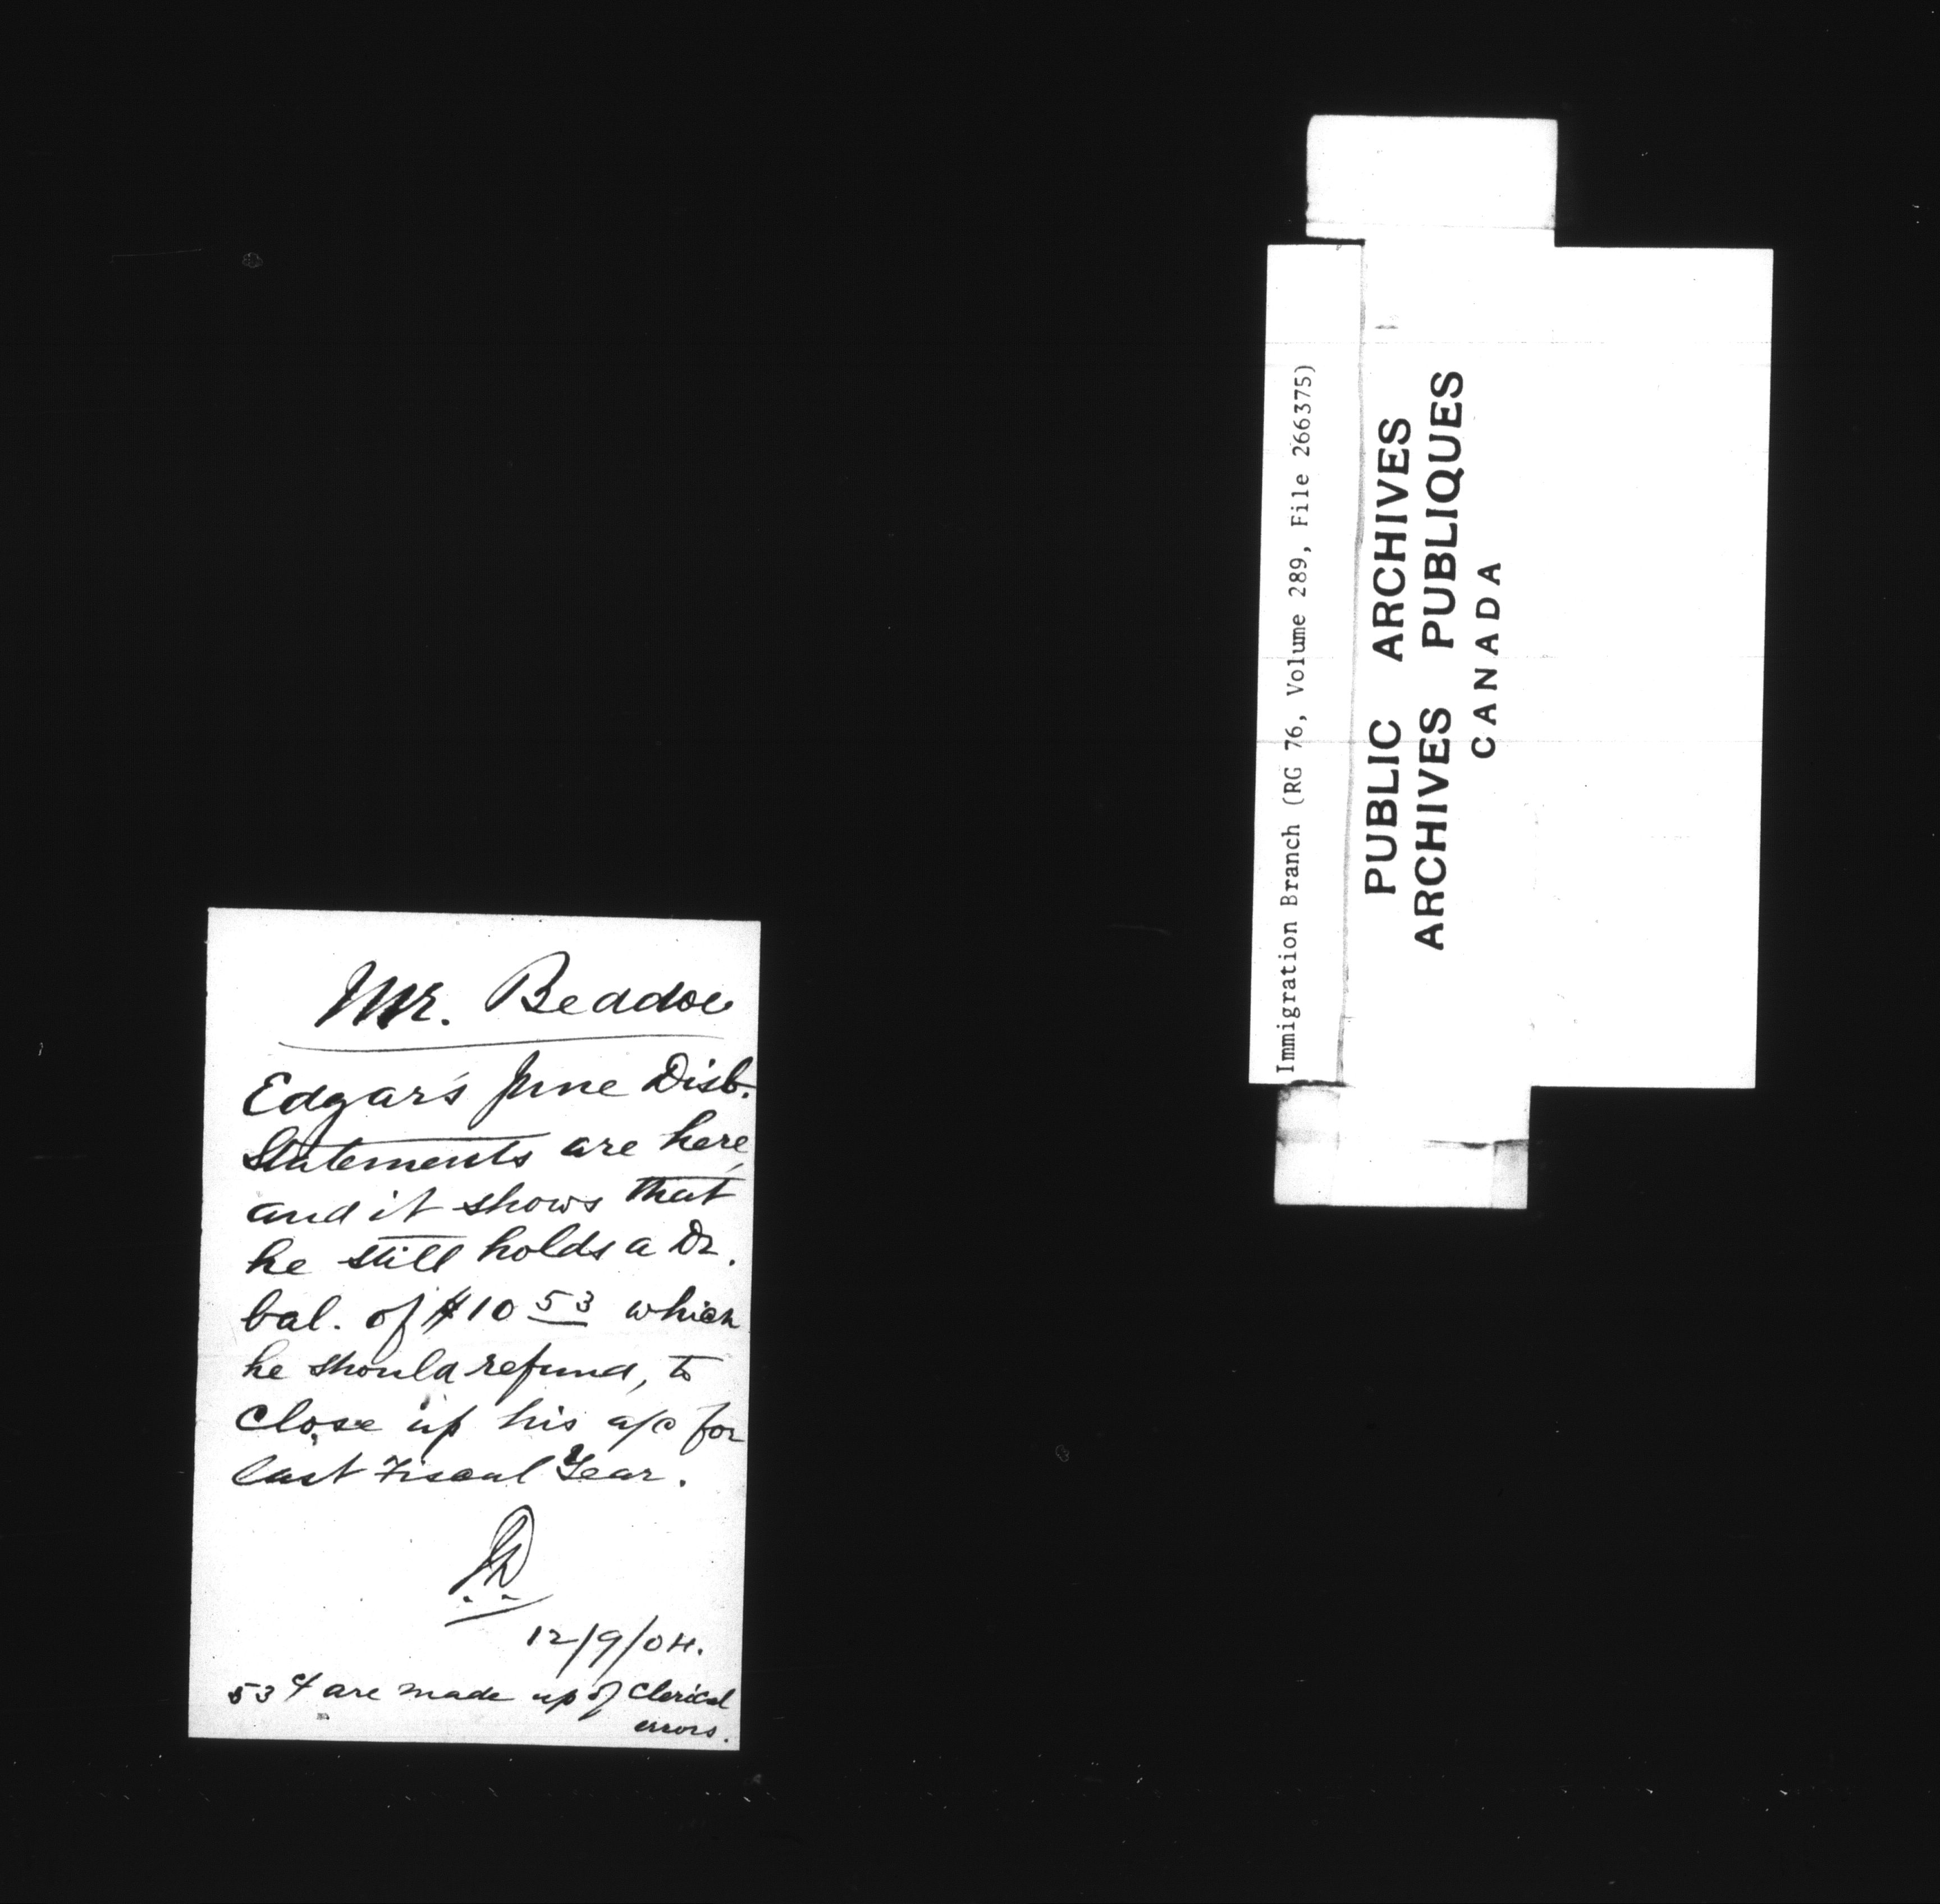 Mr. Beddoe
Edgar's June Disb.
Statements are here,
and it shows that
he still holds a Dr.
bal. of $10 53 which
he should refund, to
close up his a/c for
last Fiscal Year.
12/9/04.
53 ¢ are made up of clerical
errors.
Immigration Branch (RG 76, Volume 289, File 266375)
PUBLIC ARCHIVES
ARCHIVES PUBLIQUES
CANADA